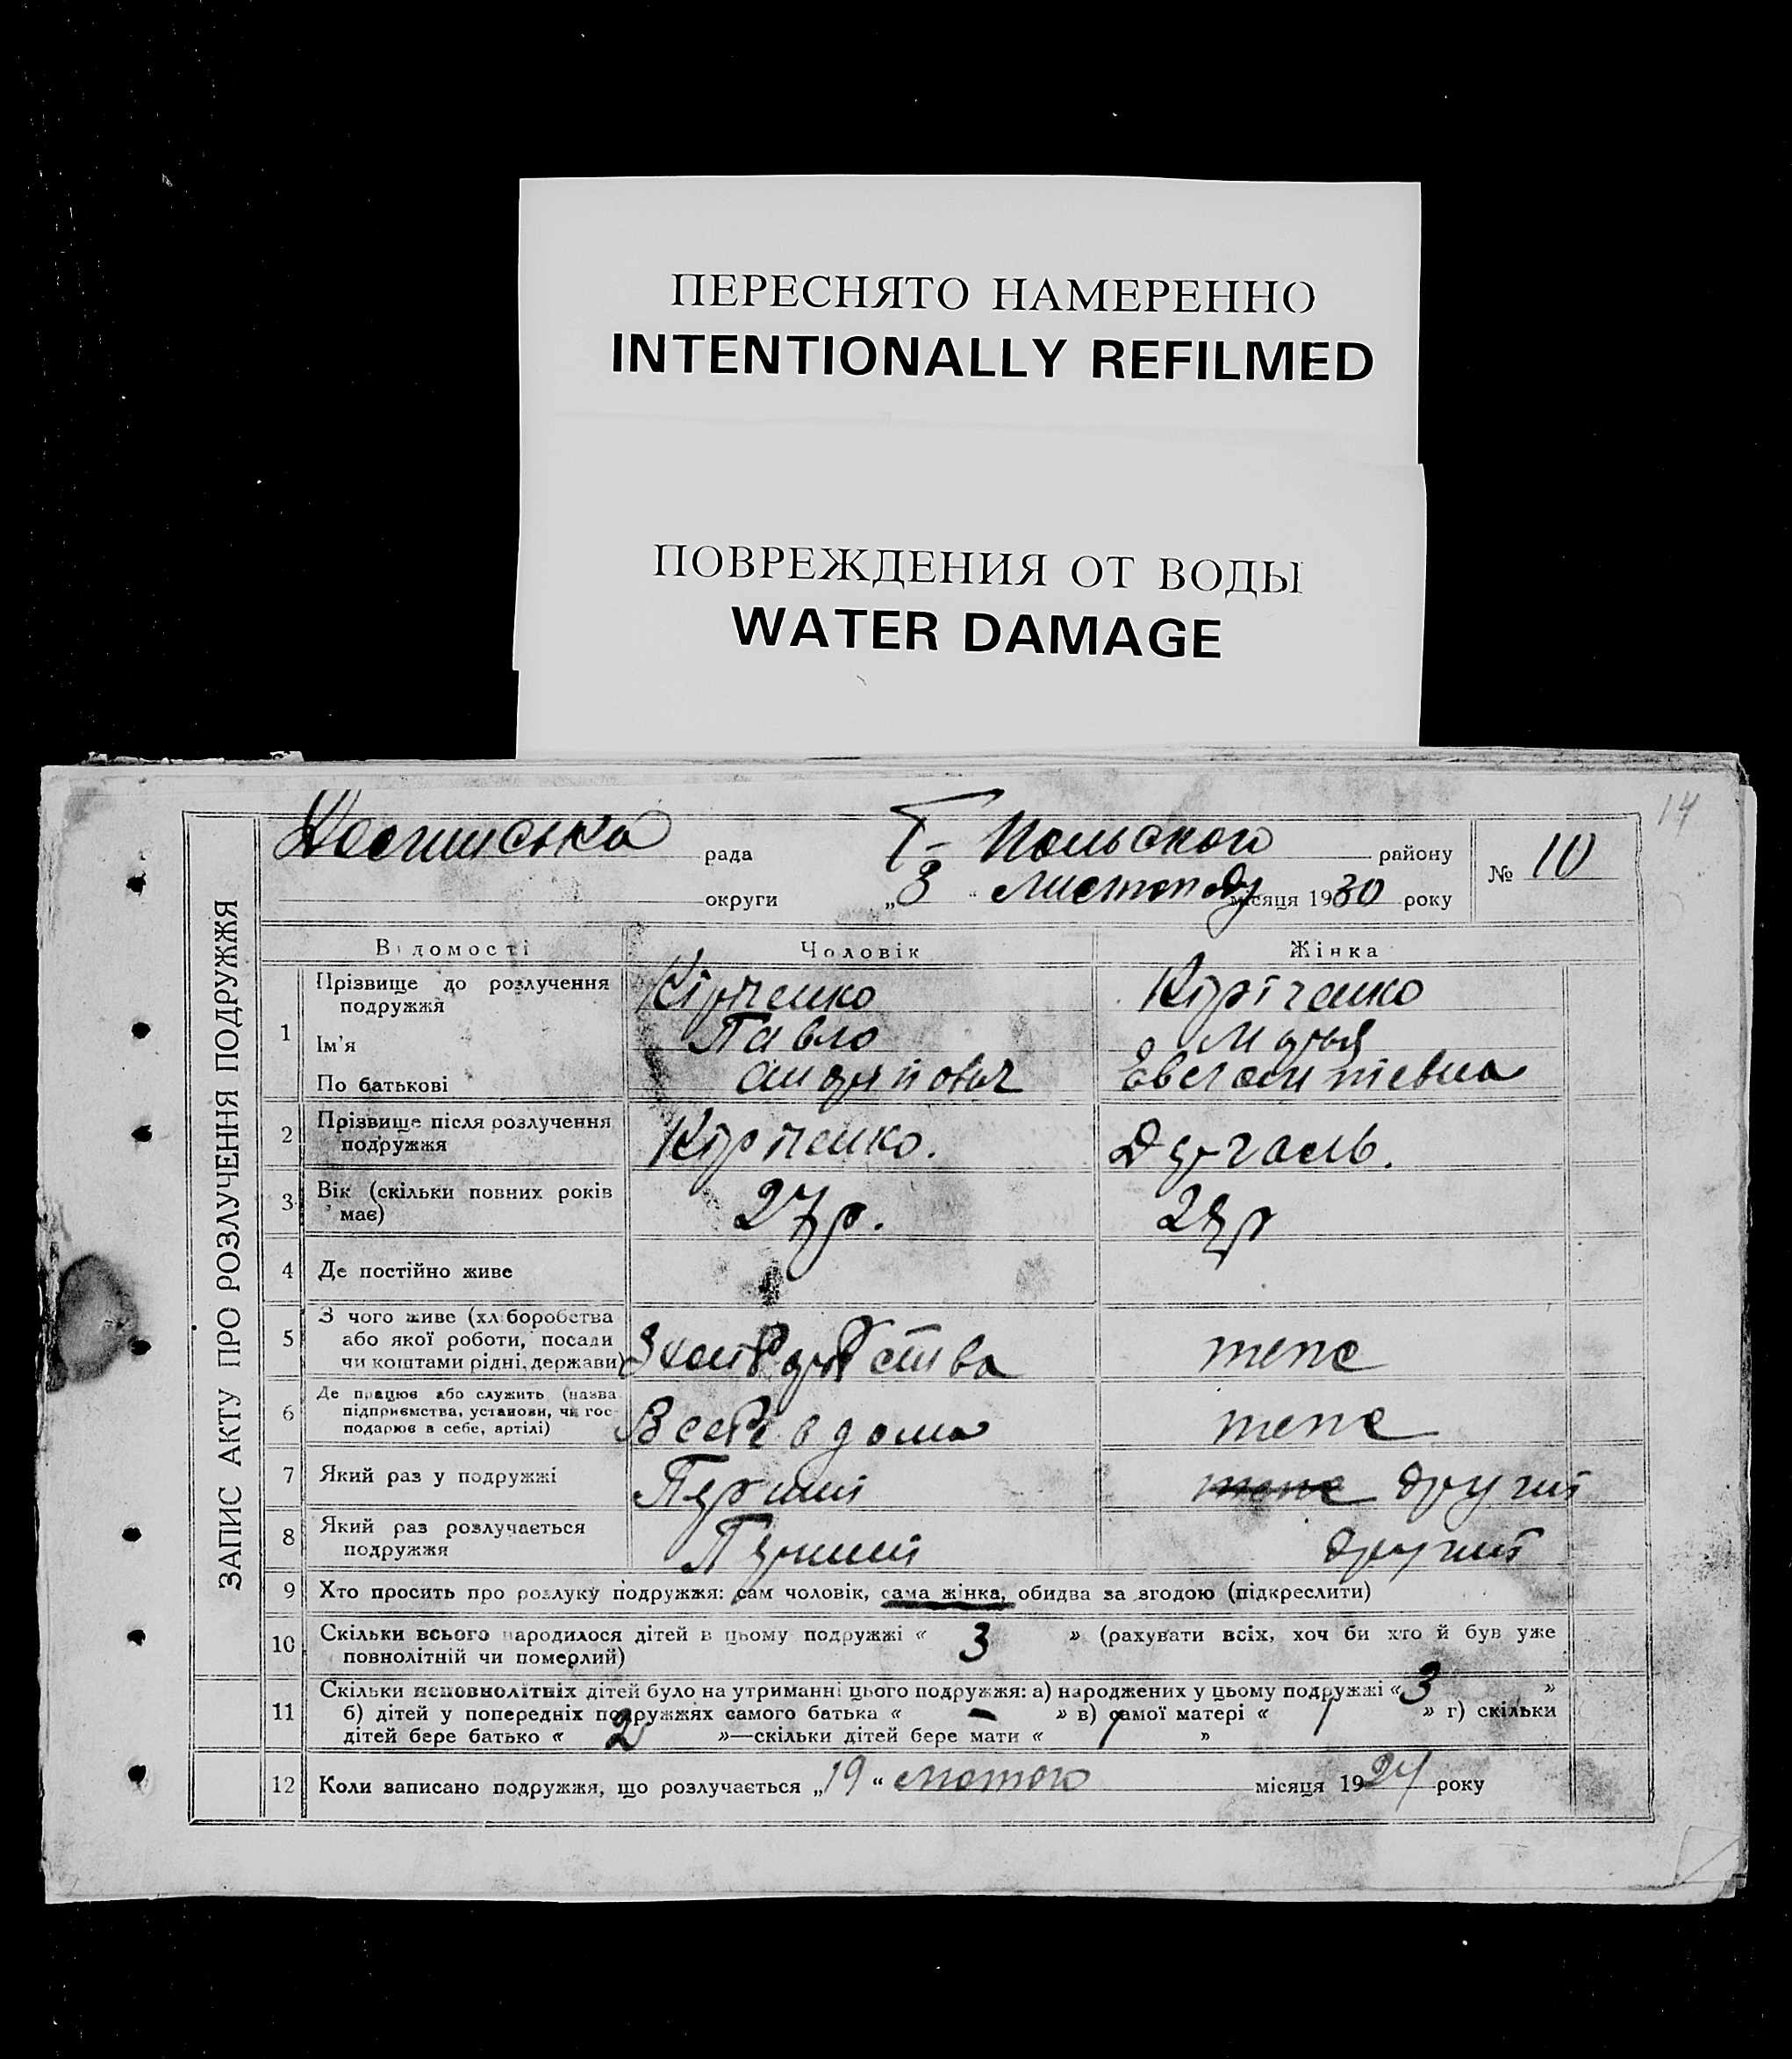 ПЕРЕСНЯТО НАМЕРЕННО
INTENTIONALLY REFILMED
ПОВРЕЖДЕНИЯ ОТ ВОДЫ
WATER DAMAGE
14
рада Г- Польского району № 10
округи „3“ листопаду місяця 1930 року
ЗАПИС АКТУ ПРО РОЗЛУЧЕННЯ ПОДРУЖЖЯ
Відомості Чоловік Жінка
1 Прізвище до розлучення подружжя Кіріченко
Ім'я Павло Марья
По батькові
2 Прізвище після розлучення подружжя
3 Вік (скільки повних років має) 27 р.
4 Де постійно живе
5 З чого живе (хліборобства або якої роботи, посади чи коштами рідні, держави) теpe
6 Де працює або служить (назва підприємства, установи, чи господарює в себе, артілі) В себе в дома
7 Який раз у подружжі Перший другий
8 Який раз розлучається подружжя Перший другий
9 Хто просить про розлуку подружжя: сам чоловік, сама жінка, обидва за згодою (підкреслити)
10 Скільки всього народилося дітей в цьому подружжі « 3 » (рахувати всіх, хоч би хто й був уже
повнолітній чи померлий)
11 Скільки неповнолітніх дітей було на утриманні цього подружжя: а) народжених у цьому подружжі « 3 »
б) дітей у попередніх подружжях самого батька « – » в) самої матері « 1 » г) скільки
дітей бере батько « 2 »—скільки дітей бере мати « 1 »
12 Коли записано подружжя, що розлучається „19“ лютого місяця 1924 року